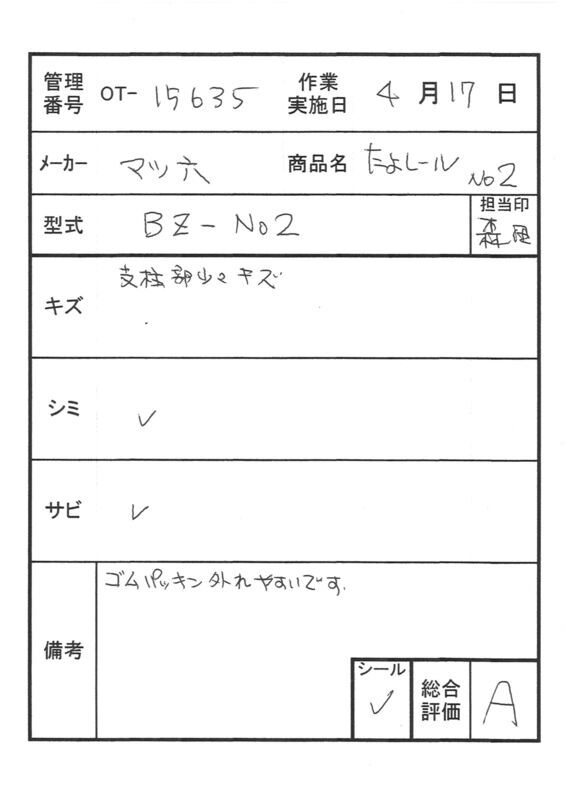 管理番号 OT- 15635 作業実施日 4月17日
メーカー マツ六 商品名 たよレール No2
型式 BZ-No2 担当印
キズ 支柱部少々キズ
シミ ✓
サビ ✓
備考 ゴムパッキン外れやすいです.
シール ✓ 総合評価 A